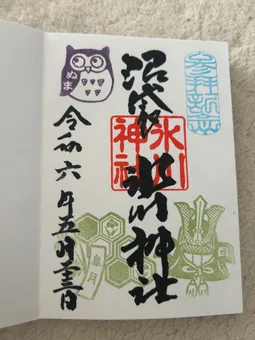 参拝記念
沼袋 氷川神社
氷川
神社
令和六年五月三日
ぬま
皐月